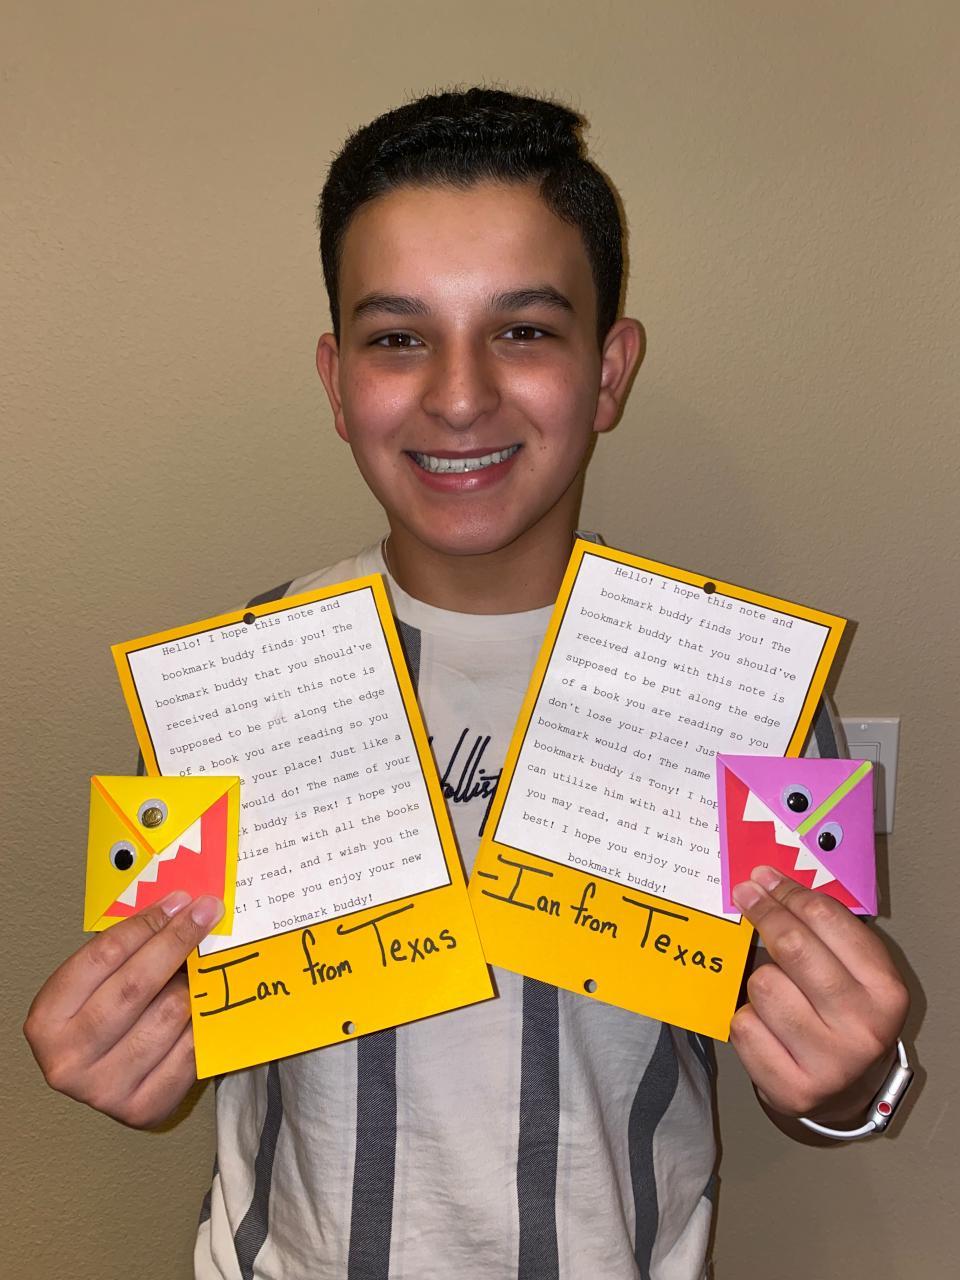 Hello! I hope this note and
bookmark buddy finds you! The
bookmark buddy that you should've
received along with this note is
supposed to be put along the edge
of a book you are reading so you
your place! Just like a
would do! The name of your
buddy is Rex! I hope you
ilize him with all the books
may read, and I wish you the
t! I hope you enjoy your new
bookmark buddy!
-Ian from Texas
Hello! I hope this note and
bookmark buddy finds you! The
bookmark buddy that you should've
received along with this note is
supposed to be put along the edge
of a book you are reading so you
don't lose your place! Just
bookmark would do! The name
bookmark buddy is Tony! I hop
can utilize him with all the b
you may read, and I wish you t
best! I hope you enjoy your ne
bookmark buddy!
-Ian from Texas
Hollist